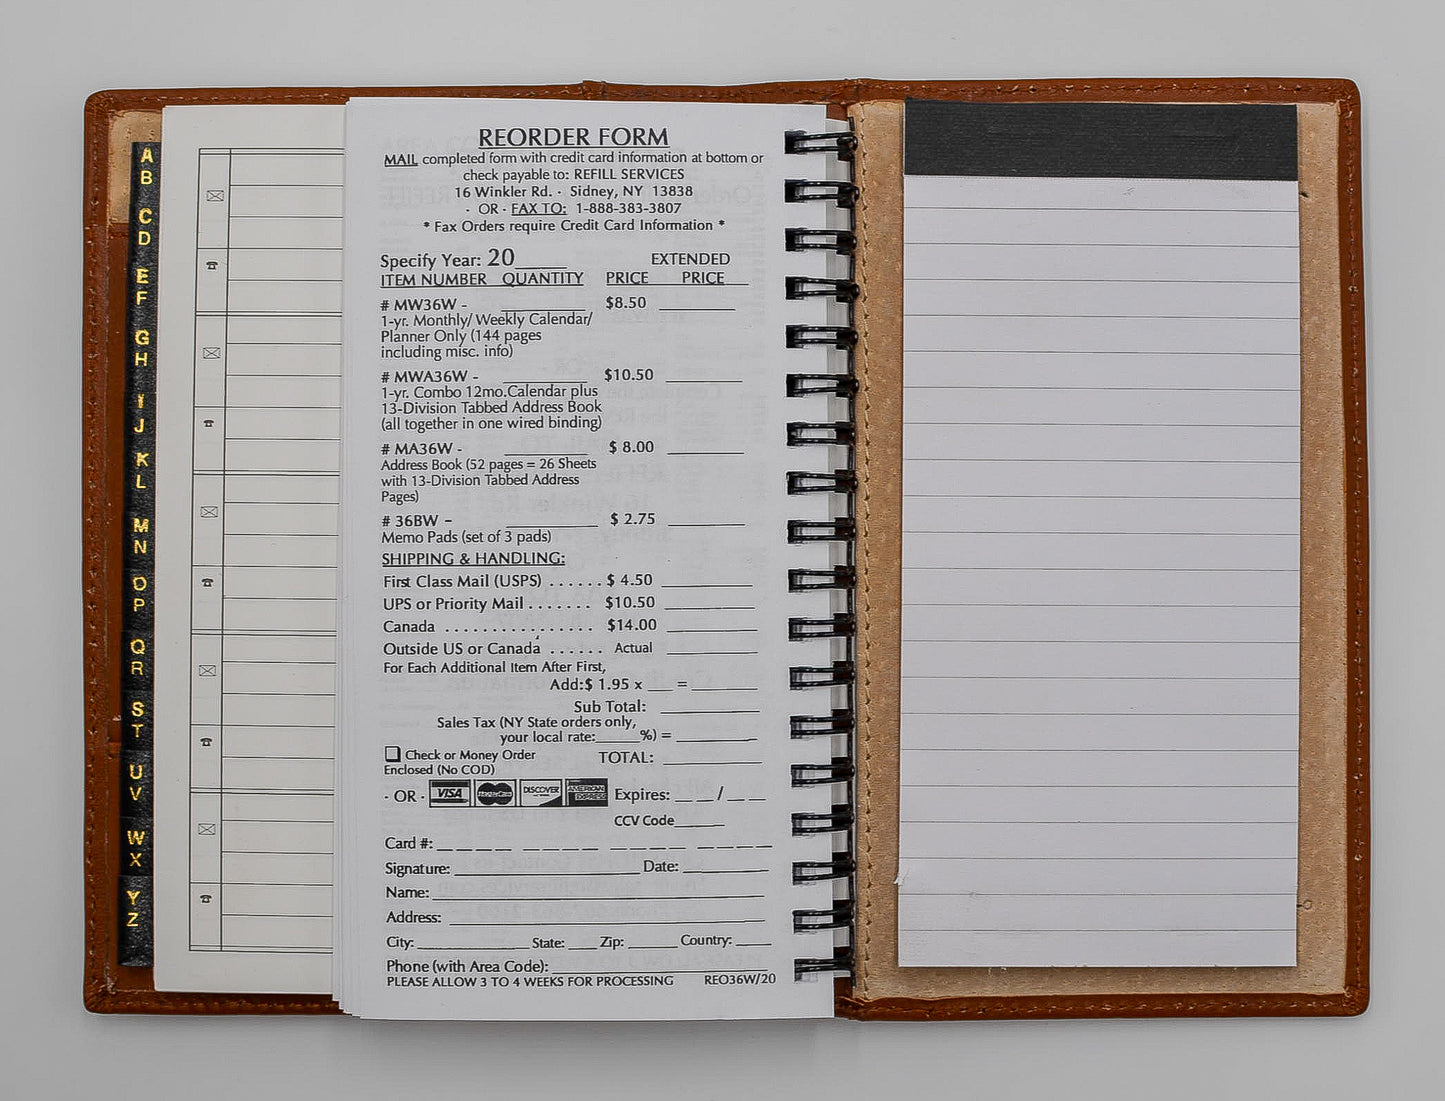 A
B
C
D
E
F
G
H
I
J
K
L
M
N
O
P
Q
R
S
T
U
V
W
X
Y
Z
REORDER FORM
MAIL completed form with credit card information at bottom or
check payable to: REFILL SERVICES
16 Winkler Rd. · Sidney, NY 13838
· OR · FAX TO: 1-888-383-3807
* Fax Orders require Credit Card Information *
Specify Year: 20____ EXTENDED
ITEM NUMBER QUANTITY PRICE PRICE
# MW36W - ________ $8.50 ________
1-yr. Monthly/ Weekly Calendar/
Planner Only (144 pages
including misc. info)
# MWA36W - ________ $10.50 ________
1-yr. Combo 12mo.Calendar plus
13-Division Tabbed Address Book
(all together in one wired binding)
# MA36W - ________ $ 8.00 ________
Address Book (52 pages = 26 Sheets
with 13-Division Tabbed Address
Pages)
# 36BW – ________ $ 2.75 ________
Memo Pads (set of 3 pads)
SHIPPING & HANDLING:
First Class Mail (USPS) . . . . . . $ 4.50 ________
UPS or Priority Mail . . . . . . . $10.50 ________
Canada . . . . . . . . . . . . . . . . $14.00 ________
Outside US or Canada . . . . . . Actual ________
For Each Additional Item After First,
Add:$ 1.95 x ___ = ________
Sub Total: ________
Sales Tax (NY State orders only,
your local rate:_____%) = ________
❏ Check or Money Order TOTAL: ________
Enclosed (No COD)
· OR · VISA MasterCard DISCOVER AMERICAN EXPRESS Expires: __ __ / __ __
CCV Code______
Card #: _ _ _ _ _ _ _ _ _ _ _ _ _ _ _ _
Signature: ________________ Date: ________
Name: ________________
Address: ________________
City: ____________ State: ___ Zip: _____ Country: ____
Phone (with Area Code): ________________
PLEASE ALLOW 3 TO 4 WEEKS FOR PROCESSING REO36W/20